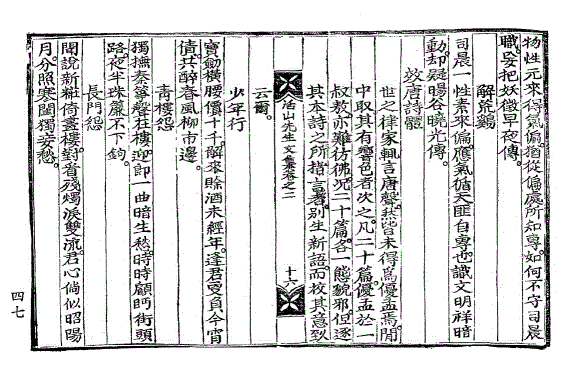 物性元來得氣偏猶從偏處所知專如何不守司晨
職妄把妖徵早夜傳
解荒鷄
司晨一性素來偏應氣循天匪自專也識文明祥暗
動却疑暘谷曉光傳
效唐詩體
世之律家輒言唐聲然皆未得爲優孟焉閒
中取其有響色者次之凡二十篇優孟於一
叔敖亦難彷佛況二十篇各一態貌邪但逐
其本詩之所指言者別生新語而校其意致
活山先生文集卷之二
十六
云爾
少年行
寶劒橫腰價十千解來賖酒未經年逢君更負今宵
債共醉春風柳市邊
靑樓怨
獨撫秦箏罄在樓迎郎一曲暗生愁時時顧眄街頭
路夜半珠簾不下鉤
長門怨
聞說新粧倚畫樓對看殘燭淚雙流君心倘似昭陽
月分照寒閨獨妾愁
四七